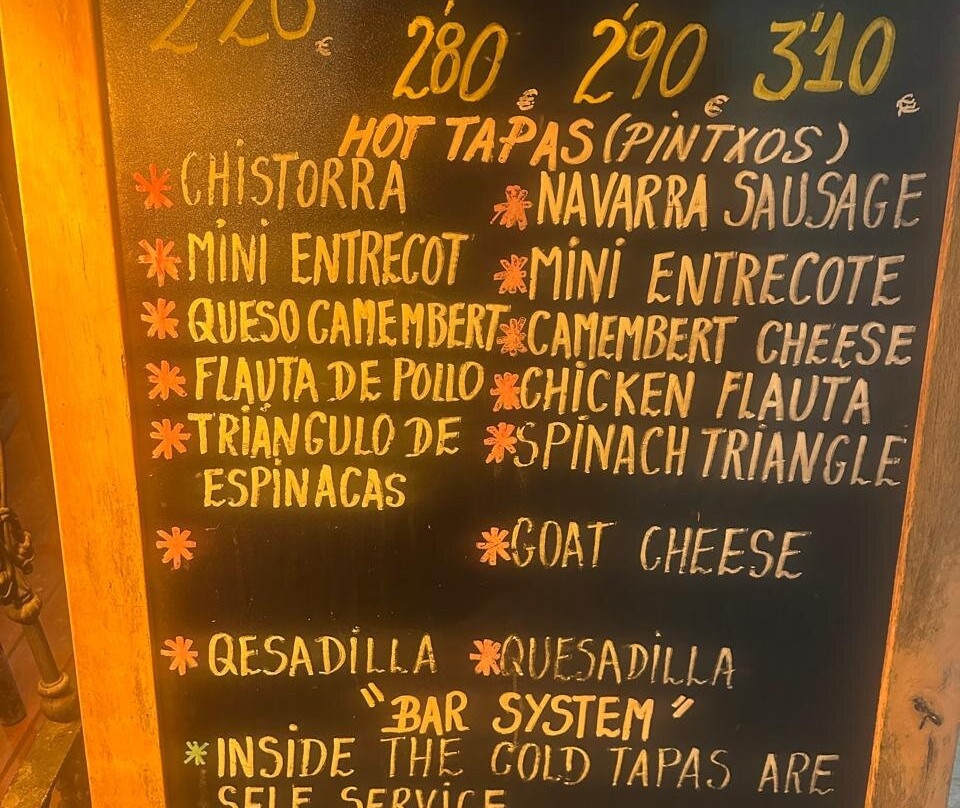 2'20 €
2'80 € 2'90 € 3'10 €
HOT TAPAS (PINTXOS)
* CHISTORRA * NAVARRA SAUSAGE
* MINI ENTRECOT * MINI ENTRECOTE
* QUESO CAMEMBERT * CAMEMBERT CHEESE
* FLAUTA DE POLLO * CHICKEN FLAUTA
* TRIÁNGULO DE * SPINACH TRIANGLE
ESPINACAS
* * GOAT CHEESE
* QESADILLA * QUESADILLA
"BAR SYSTEM"
* INSIDE THE COLD TAPAS ARE
SELF SERVICE